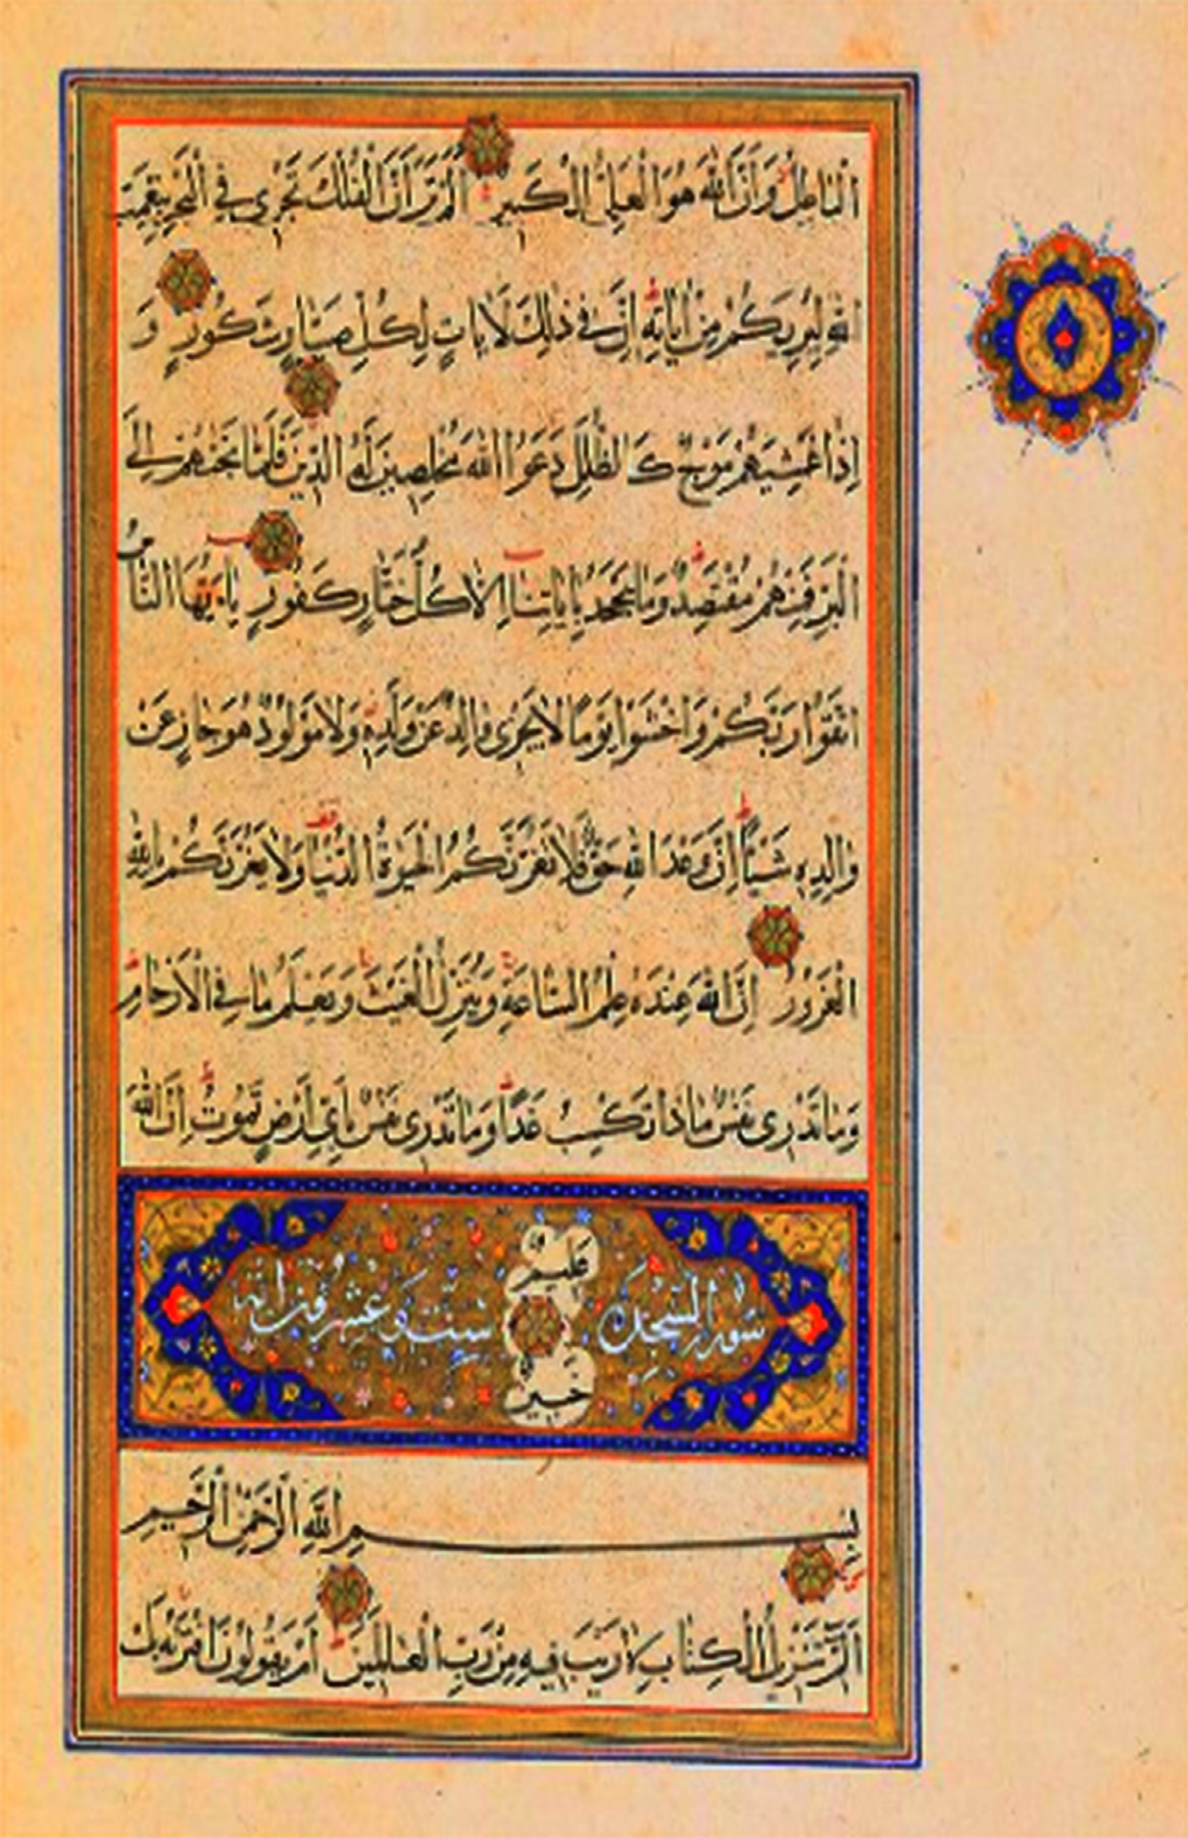 الْبَاطِلُ وَأَنَّ اللّٰهَ هُوَ الْعَلِيُّ الْكَبِيرُ اَلَمْ تَرَ اَنَّ الْفُلْكَ تَجْرِي فِي الْبَحْرِ بِنِعْمَتِ
اللّٰهِ لِيُرِيَكُمْ مِنْ اٰيَاتِهِ اِنَّ فِي ذٰلِكَ لَاٰيَاتٍ لِكُلِّ صَبَّارٍ شَكُورٍ وَ
اِذَا غَشِيَهُمْ مَوْجٌ كَالظُّلَلِ دَعَوُا اللّٰهَ مُخْلِصِينَ لَهُ الدِّينَ فَلَمَّا نَجّٰهُمْ اِلَى
الْبَرِّ فَمِنْهُمْ مُقْتَصِدٌ وَمَا يَجْحَدُ بِاٰيَاتِنَا اِلَّا كُلُّ خَتَّارٍ كَفُورٍ يَا اَيُّهَا النَّاسُ
اتَّقُوا رَبَّكُمْ وَاخْشَوْا يَوْمًا لَا يَجْزِي وَالِدٌ عَنْ وَلَدِهِ وَلَا مَوْلُودٌ هُوَ جَازٍ عَنْ
وَالِدِهِ شَيْئًا اِنَّ وَعْدَ اللّٰهِ حَقٌّ فَلَا تَغُرَّنَّكُمُ الْحَيٰوةُ الدُّنْيَا وَلَا يَغُرَّنَّكُمْ بِاللّٰهِ
الْغَرُورُ اِنَّ اللّٰهَ عِنْدَهُ عِلْمُ السَّاعَةِ وَيُنَزِّلُ الْغَيْثَ وَيَعْلَمُ مَا فِي الْاَرْحَامِ
وَمَا تَدْرِي نَفْسٌ مَاذَا تَكْسِبُ غَدًا وَمَا تَدْرِي نَفْسٌ بِاَيِّ اَرْضٍ تَمُوتُ اِنَّ اللّٰهَ
عَلِيمٌ
سورة السجدة ست وعشر
خَبِيرٌ
بِسْمِ اللّٰهِ الرَّحْمٰنِ الرَّحِيمِ
الٓمٓ تَنْزِيلُ الْكِتَابِ لَا رَيْبَ فِيهِ مِنْ رَبِّ الْعَالَمِينَ اَمْ يَقُولُونَ افْتَرٰيهُ بَلْ